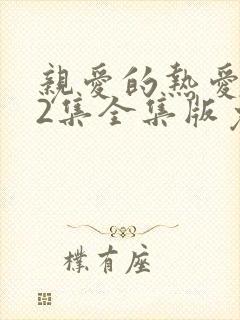 親愛的熱愛
2集全集版
樸有座